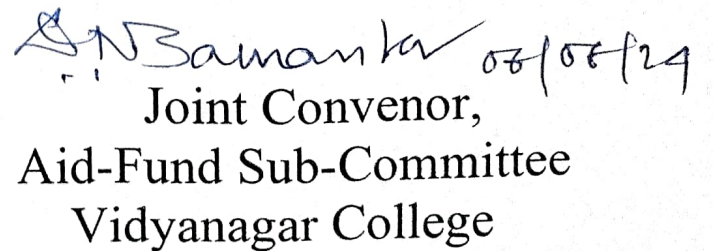 S.N Samanta 06/06/24
Joint Convenor,
Aid-Fund Sub-Committee
Vidyanagar College